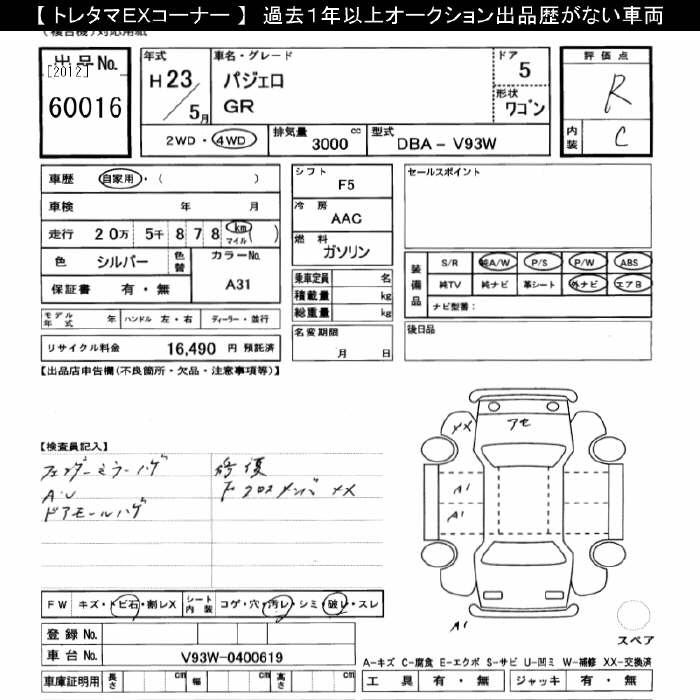 【 トレタマEXコーナー 】 過去1年以上オークション出品歴がない車両
(複合機)対応用紙
出品No.
[2012]
60016
年式
H 23/5月
車名・グレード
パジェロ
GR
ドア
5
形状
ワゴン
評価点
R
内装
C
2WD・4WD
排気量 3000 cc
型式 DBA - V93W
車歴 自家用・( )
車検 年 月
走行 20万 5千 8 7 8 km マイル ( )
色 シルバー 色替 カラーNo.
A31
保証書 有・無
シフト
F5
冷房
AAC
燃料
ガソリン
セールスポイント
装備品
S/R 純A/W P/S P/W ABS
純TV 純ナビ 革シート 外ナビ エアB
ナビ型番:
乗車定員 名
積載量 kg
総重量 kg
モデル年式 年 ハンドル 左・右 ディーラー・並行
名変期限
月 日
後日品
リサイクル料金 16,490 円 預託済
【出品店申告欄(不良箇所・欠品・注意事項等)】
【検査員記入】
フェンダーミラーハゲ
A・U
ドアモールハゲ
修復
F クロスメンバ XX
XX
アセ
A1
A1
A1
FW キズ・トビ石・割レX シート内装 コゲ・穴・汚レ・シミ・破レ・スレ
登録No.
車台No. V93W-0400619
スペア
A-キズ C-腐食 E-エクボ S-サビ U-凹ミ W-補修 XX-交換済
車庫証明用 長さ cm 幅 cm 高さ cm
工具 有・無 ジャッキ 有・無